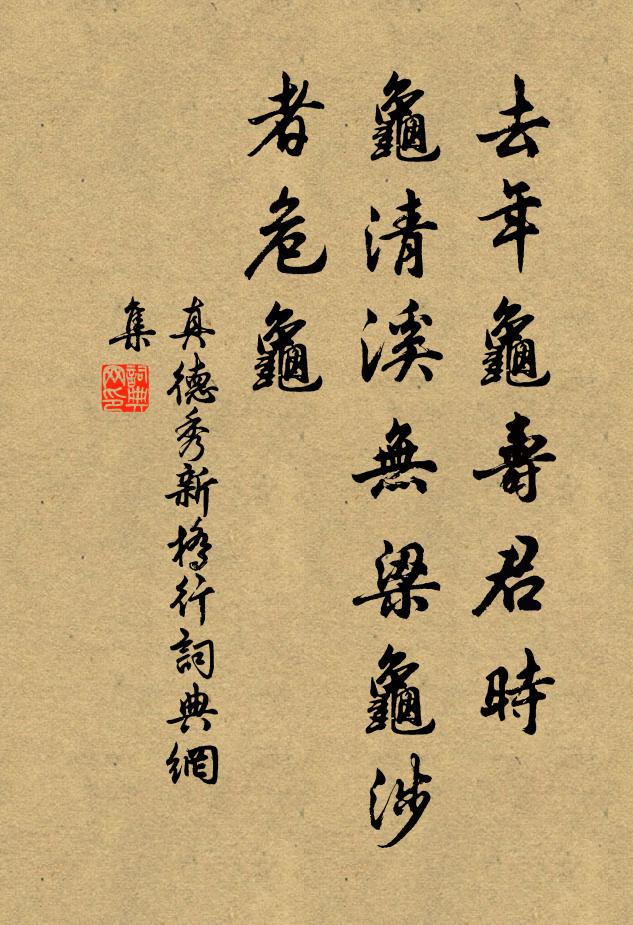 去年龜壽君時
龜清溪無梁龜涉
者危龜
真德秀新橋行詞典網
集
詞典網印